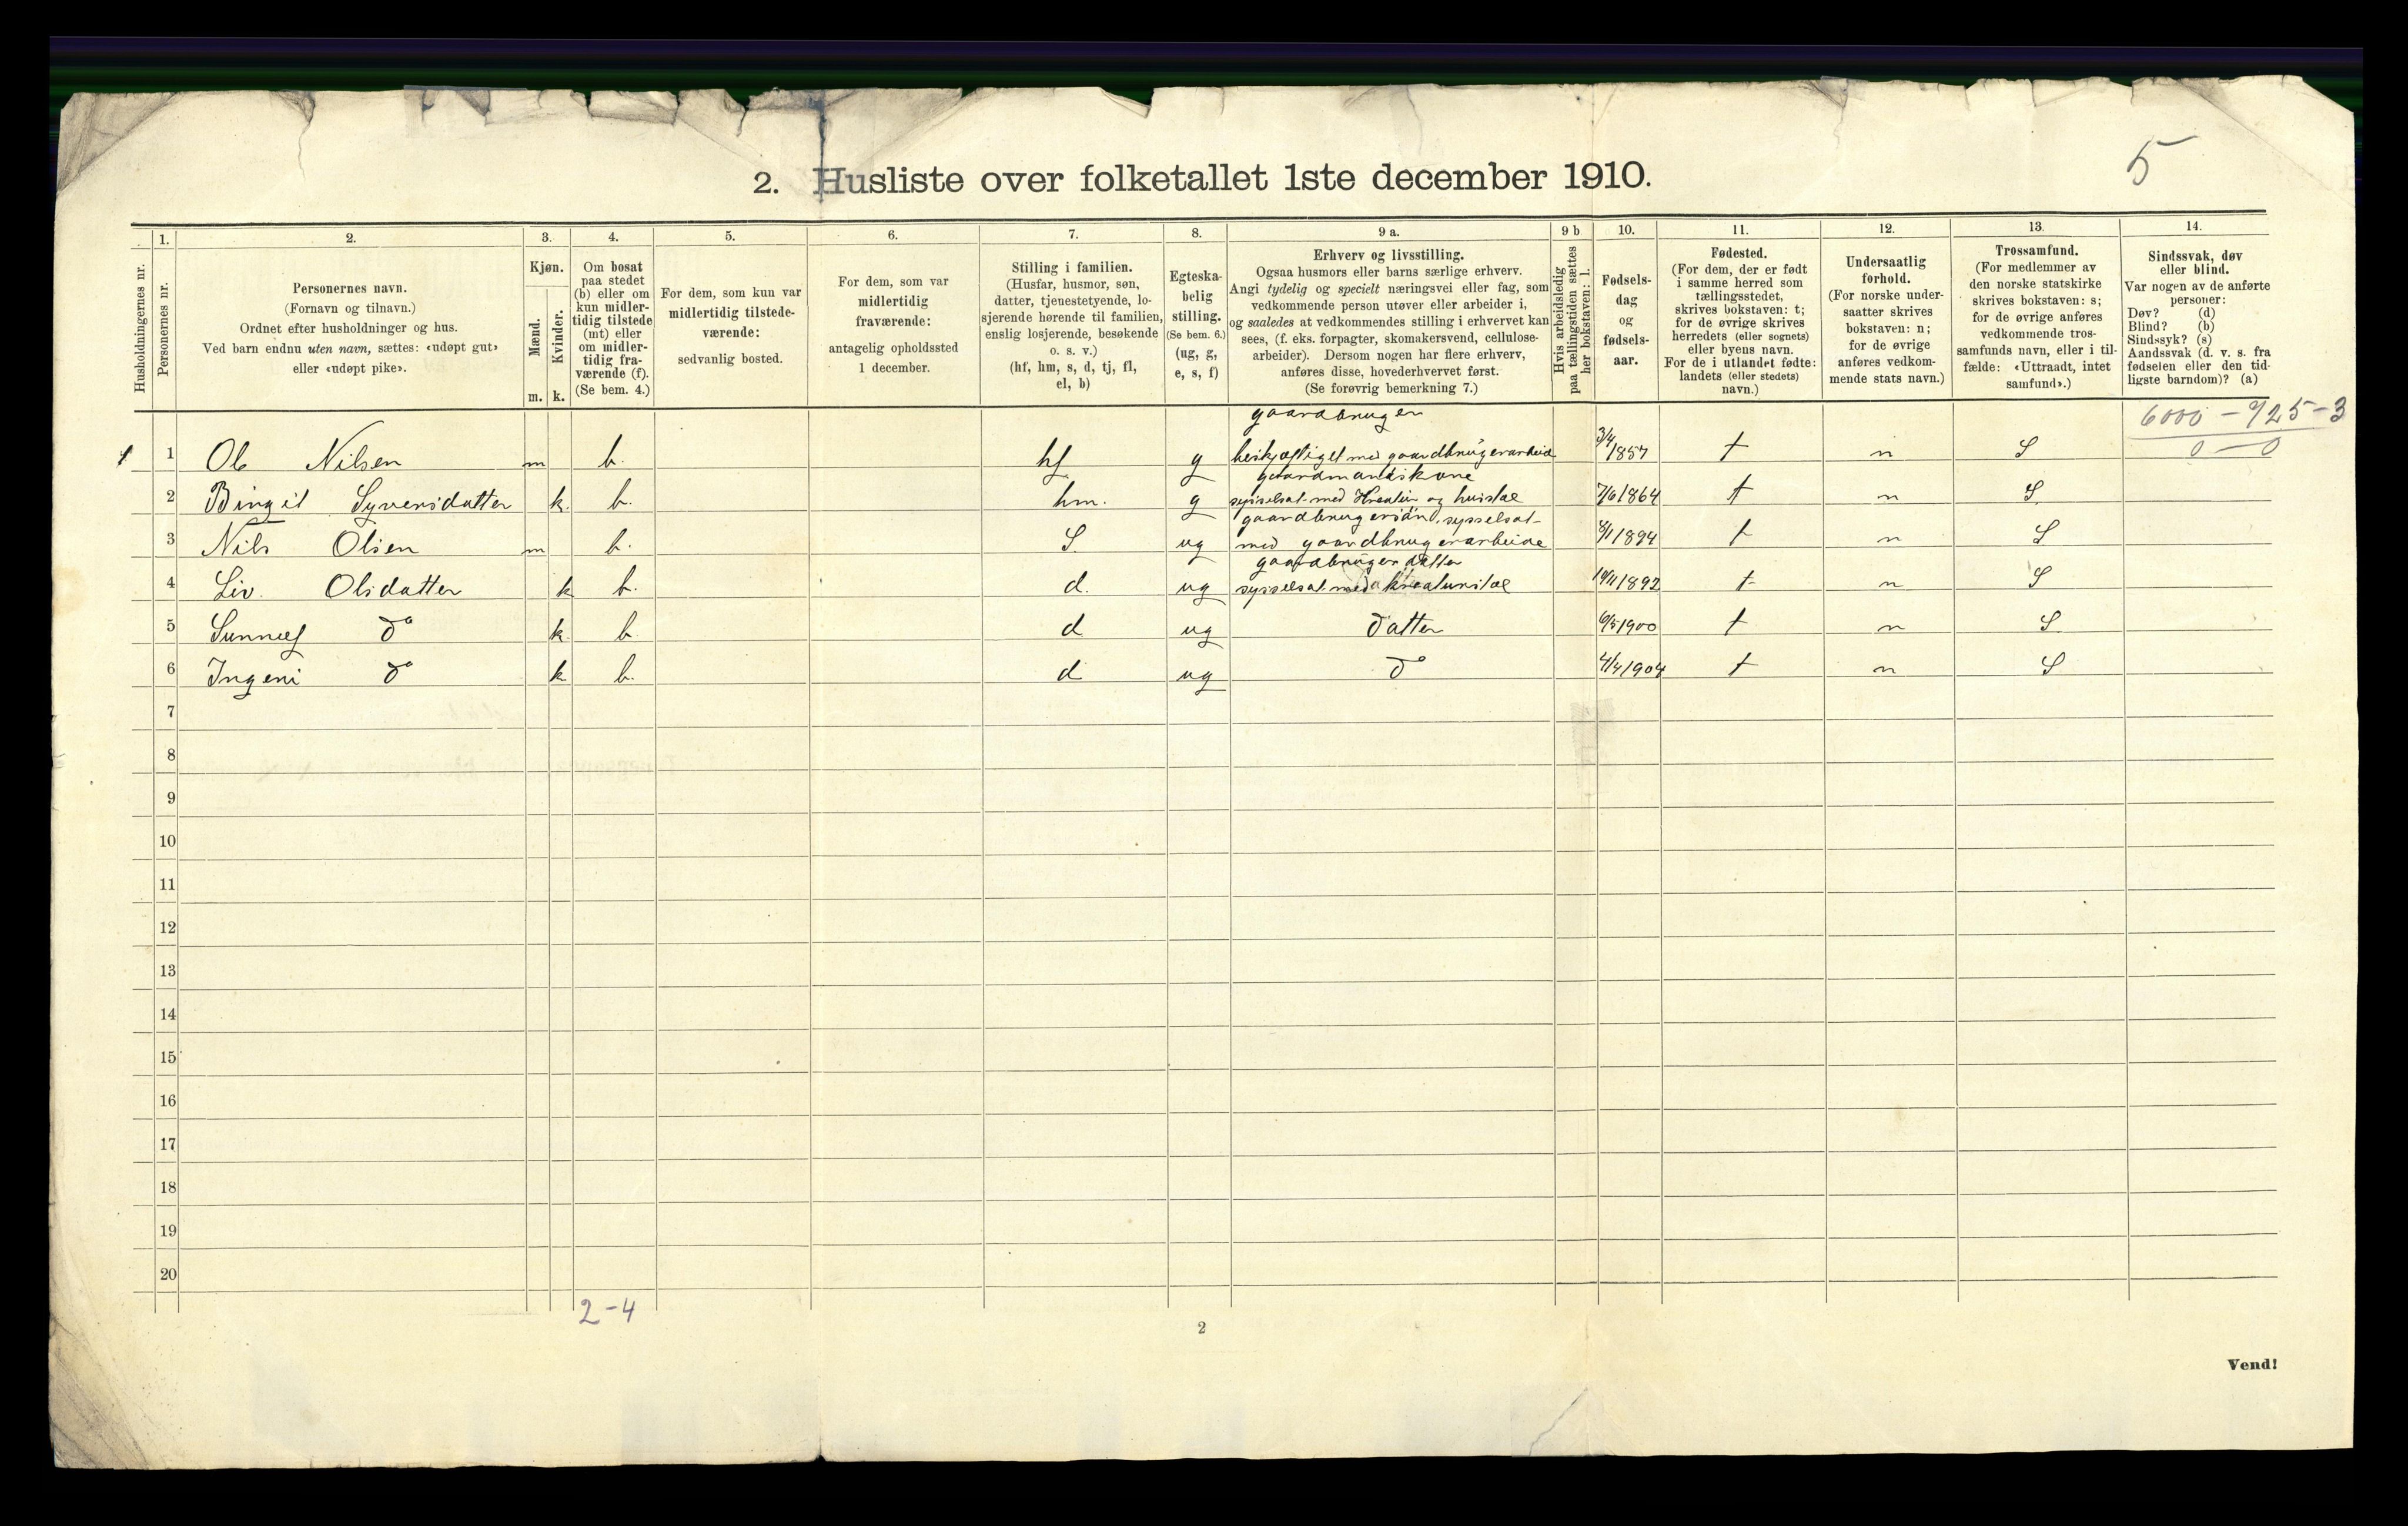 5
2. Husliste over folketallet 1ste december 1910.
Husholdningernes nr.
1.
Personernes nr.
2.
Personernes navn.
(Fornavn og tilnavn.)
Ordnet efter husholdninger og hus.
Ved barn endnu uten navn, sættes: «udøpt gut»
eller «udøpt pike».
3.
Kjøn.
Mænd.
Kvinder.
m. k.
4.
Om bosat
paa stedet
(b) eller om
kun midler-
tidig tilstede
(mt) eller
om midler-
tidig fra-
værende (f).
(Se bem. 4.)
5.
For dem, som kun var
midlertidig tilstede-
værende:
sedvanlig bosted.
6.
For dem, som var
midlertidig
fraværende:
antagelig opholdssted
1 december.
7.
Stilling i familien.
(Husfar, husmor, søn,
datter, tjenestetyende, lo-
sjerende hørende til familien,
enslig losjerende, besøkende
o. s. v.)
(hf, hm, s, d, tj, fl,
el, b)
8.
Egteska-
belig
stilling.
(Se bem. 6.)
(ug, g,
e, s, f)
9 a.
Erhverv og livsstilling.
Ogsaa husmors eller barns særlige erhverv.
Angi tydelig og specielt næringsvei eller fag, som
vedkommende person utøver eller arbeider i,
og saaledes at vedkommendes stilling i erhvervet kan
sees, (f. eks. forpagter, skomakersvend, cellulose-
arbeider). Dersom nogen har flere erhverv,
anføres disse, hovederhvervet først.
(Se forøvrig bemerkning 7.)
9 b
Hvis arbeidsledig
paa tællingstiden sættes
her bokstaven: l.
10.
Fødsels-
dag
og
fødsels-
aar.
11.
Fødested.
(For dem, der er født
i samme herred som
tællingsstedet,
skrives bokstaven: t;
for de øvrige skrives
herredets (eller sognets)
eller byens navn.
For de i utlandet fødte:
landets (eller stedets)
navn.)
12.
Undersaatlig
forhold.
(For norske under-
saatter skrives
bokstaven: n;
for de øvrige
anføres vedkom-
mende stats navn.)
13.
Trossamfund.
(For medlemmer av
den norske statskirke
skrives bokstaven: s;
for de øvrige anføres
vedkommende tros-
samfunds navn, eller i til-
fælde: «Uttraadt, intet
samfund».)
14.
Sindssvak, døv
eller blind.
Var nogen av de anførte
personer:
Døv? (d)
Blind? (b)
Sindssyk? (s)
Aandssvak (d. v. s. fra
fødselen eller den tid-
ligste barndom)? (a)
6000 - 725-3
0 - 0
gaardbruger
1 1 Ole Nilsen m b. hf g beskjæftiget med gaardbrugerarbeide 3/4 1857 t n S
gaardmandskone
2 Birgit Syversdatter k. b. hm. g sysselsat med Kreatur og husstel 7/6 1864 t n S
gaardbrugersøn, sysselsat
3 Nils Olsen m b. S. ug med gaardbrugerarbeide 8/1 1894 t n S
gaardbruger datter
4 Liv Olsdatter k b. d. ug sysselsat med kreaturstel 19/11 1892 t n S
5 Sunnef do k. b d ug datter 6/5 1900 t n S
6 Ingeri do k b. d ug do 4/4 1904 t n S
7
8
9
10
11
12
13
14
15
16
17
18
19
20
2-4
2
Vend!